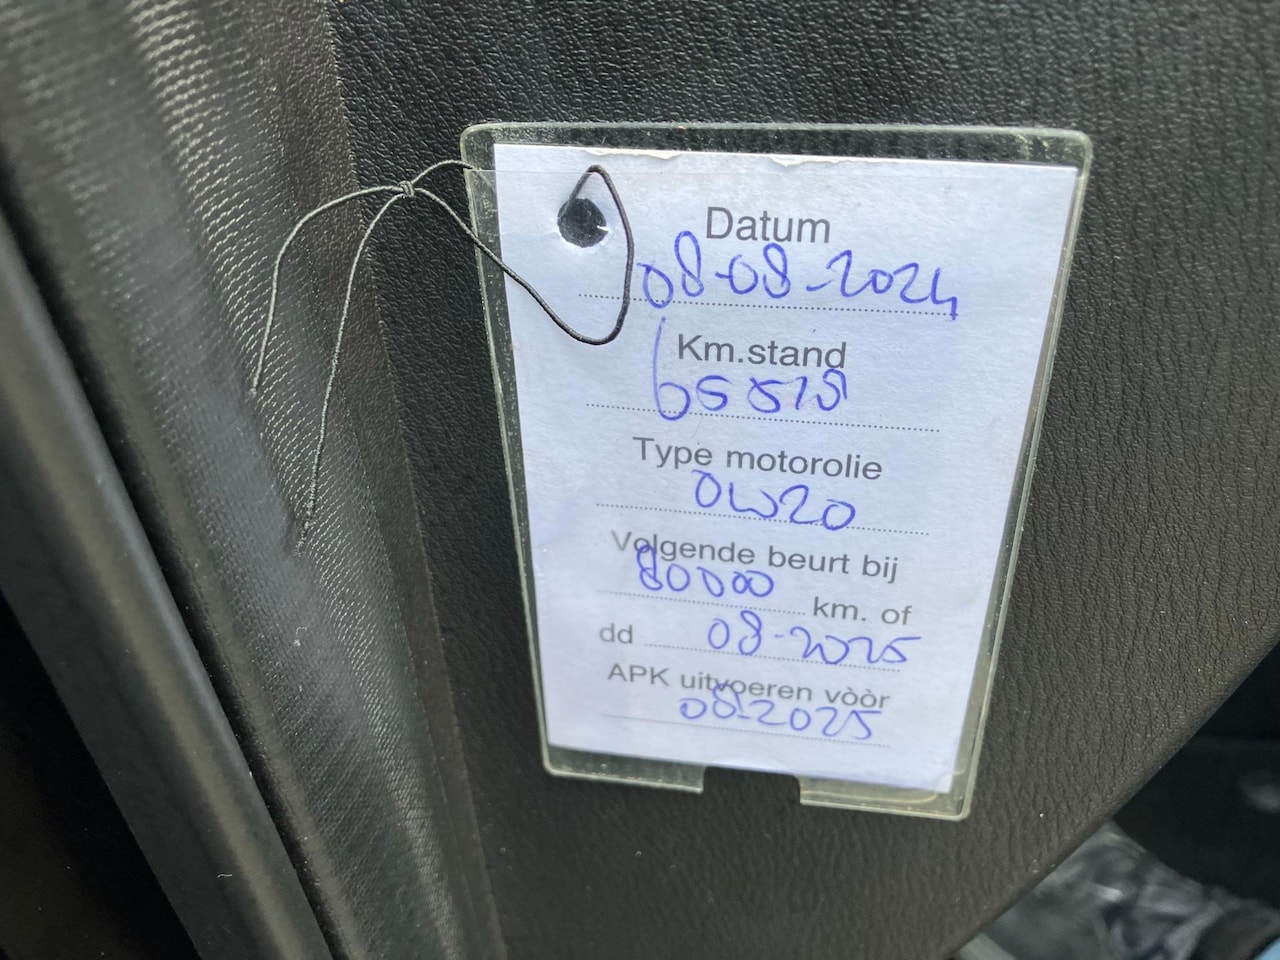 Datum
08-08-2024
Km.stand
65515
Type motorolie
0W20
Volgende beurt bij
80000 km. of
dd 08-2025
APK uitvoeren vòòr
08-2025